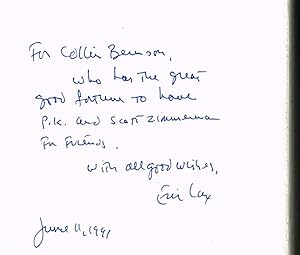 For Collin Benison,
who has the great
good fortune to have
P.K. and Scott Zimmerman
for friends.
With all good wishes,
Eric Lax
June 11, 1991